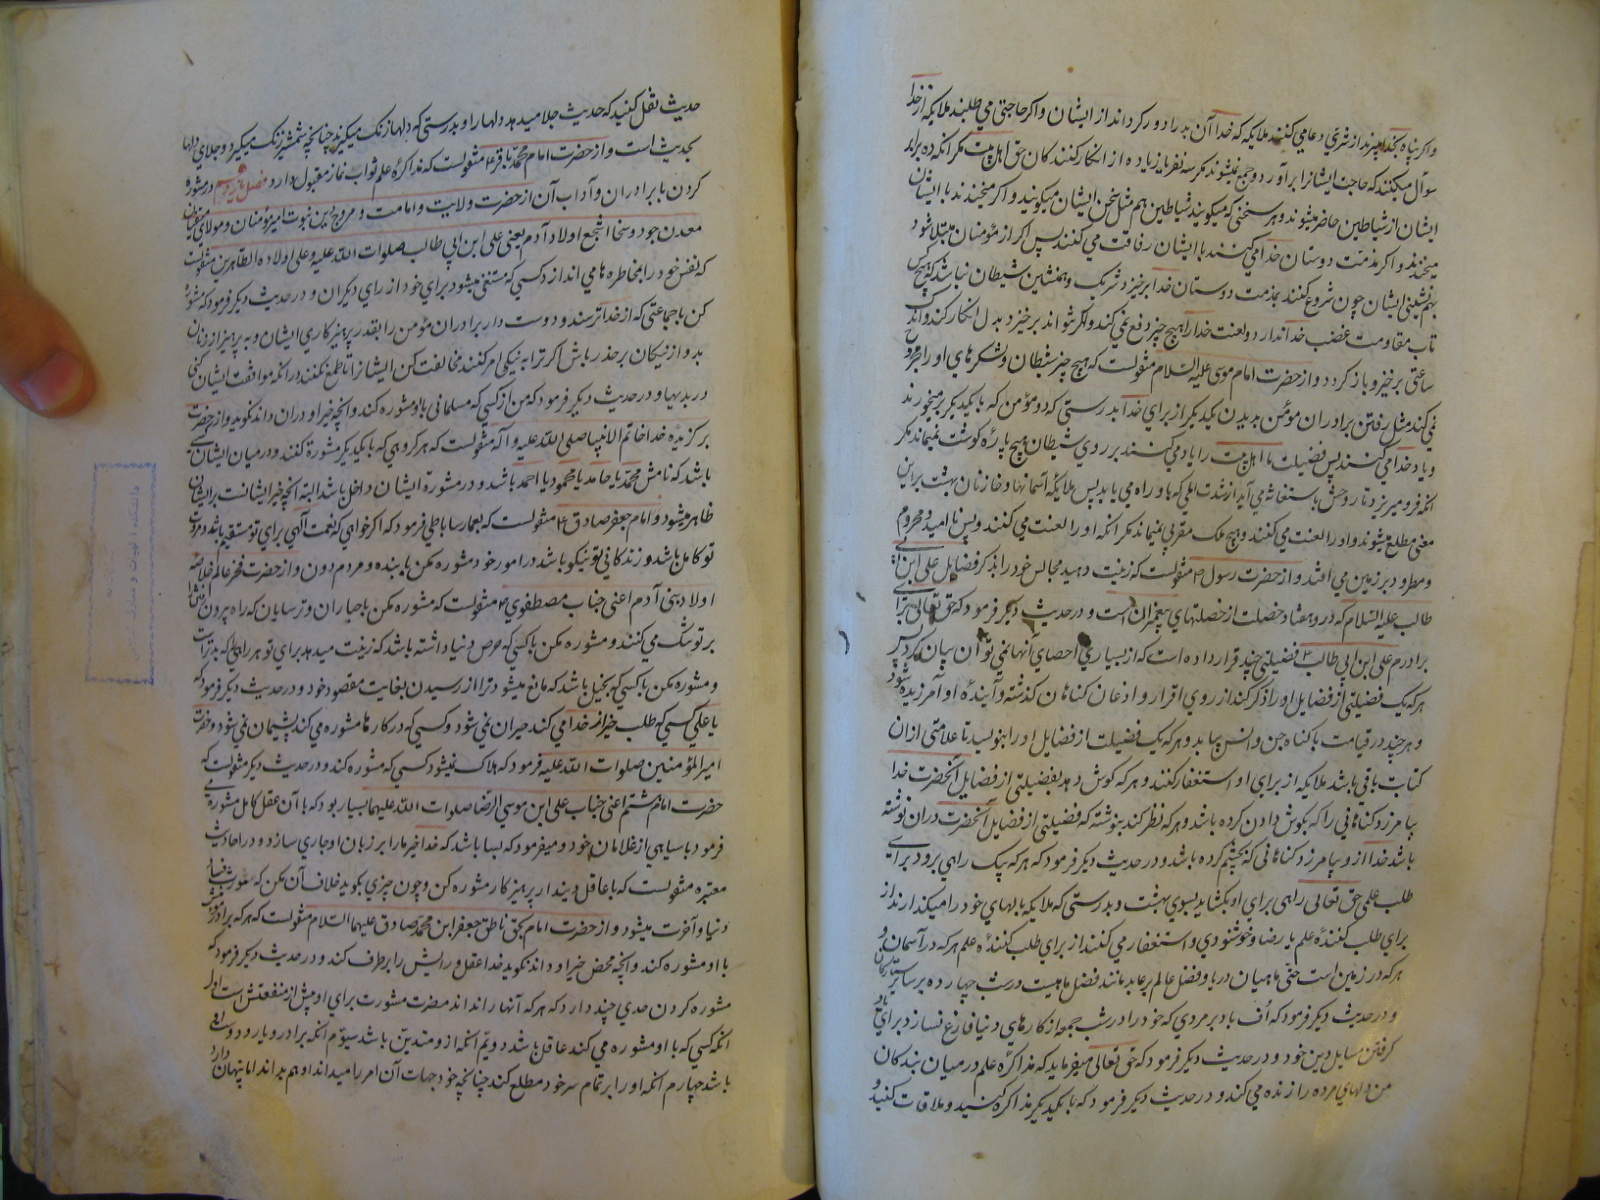 و اگر پناه بخدا میبرند از شری دعا می کنند ملایکه که خدا آن بد را دور کرداند از ایشان و اکر حاجتی می طلبند ملایکه از خدا
سوآل میکنند که حاجت ایشانرا برآورد و جمع نمیشوند مکر سه نفر یا زیاده از انکار کنندکان حق اهل بیت مکر انکه ده برابر
ایشان از شیاطین حاضر میشوند و هر سخنی که میکویند شیاطین هم مثل سخن ایشان میکویند و اکر میخندند با ایشان
میخندند و اکر مذمت دوستان خدا می کنند با ایشان رفاقت می کنند پس اکر از مؤمنان مبتلا شود
بهم نشینی ایشان چون شروع کنند بمذمت دوستان خدا برخیزد و شریک و همنشین شیطان نباشد که هیچ کس
تاب مقاومت غضب خدا ندارد و لعنت خدا را هیچ چیز دفع نمی کند و اکر نتواند برخیزد بدل انکار کند و اندک
ساعتی برخیزد و باز کردد و از حضرت امام موسی علیه السلام منقولست که هیچ چیز شیطان و لشکرهای او را مجروح
نمی کند مثل رفتن برادران مؤمن بدیدن یکدیکر از برای خدا بدرستی که دو مؤمن که با یکدیکر برمیخورند
و یاد خدا می کنند پس فضیلت ما اهل بیت را یاد می کنند بر روی شیطان هیچ پاره کوشت نمیماند مکر
انکه فرو میریزد تا روحش باستغاثه می آید از شدت المی که باو راه می یابد پس ملایکه آسمانها و خازنان بهشت بر این
معنی مطلع میشوند و او را لعنت می کنند و هیچ ملک مقربی نمیماند مکر انکه او را لعنت می کنند و پس نا امید و محروم
و مطرود بر زمین می افتد و از حضرت رسول ص منقولست که زینت دهید مجالس خود را بذکر فضایل علی ابن ابی
طالب علیه السلام که در و هفتاد خصلت از خصلتهای پیغمبران است و در حدیث دیکر فرمود که حق تعالی برای
برادرم علی ابن ابی طالب ع فضیلتی چند قرار داده است که از بسیاری احصای آنها نمی توان بیان کرد پس
هر که یک فضیلتی از فضایل او را ذکر کند از روی اقرار و اذعان کناهان کذشته و آینده او آمرزیده شود
و هر چند در قیامت با کناه جن و انس بیاید و هر که یک فضیلت از فضایل او را بنویسد تا علامتی از ان
کتابت باقی باشد ملایکه از برای او استغفار کنند و هر که کوش دهد بفضیلتی از فضایل آنحضرت خدا
بیامرزد کناهانی را که بکوش دادن کرده باشد و هر که نظر کند بنوشته که فضیلتی از فضایل آنحضرت دران نوشته
باشد خدا ازو بیامرزد کناهانی که بچشم کرده باشد و در حدیث دیکر فرمود که هر که بیک راهی برود برای
طلب علمی حق تعالی راهی برای او بکشاید بسوی بهشت و بدرستی که ملایکه بالهای خود را میکذارند از
برای طلب کنندهٔ علم با رضا و خوشنودی و استغفار می کنند از برای طلب کنندهٔ علم هر که در آسمان و
هر که در زمین است حتی ماهیان دریا و فضل عالم بر عابد مانند فضل ماهیست در شب چهارده بر سایر ستارکان
و در حدیث دیکر فرمود که اُف باد بر مردی که خود را در شب جمعه از کارهای دنیا فارغ نسازد برای یاد
کرفتن مسایل دین خود و در حدیث دیکر فرمود که حق تعالی میفرماید که مذاکرهٔ علم در میان بندکان
من دلهای مرده را زنده می کند و در حدیث دیکر فرمود که با یکدیکر مذاکره کنید و ملاقات کنید و
حدیث نقل کنید که حدیث جلا میدهد دلها را و بدرستی که دلها زنک میکیرند چنانچه شمشیر زنک میکیرد و جلای دلها
بحدیث است و از حضرت امام محمد باقر ع منقولست که مذاکرهٔ علم ثواب نماز مقبول دارد فصل یازدهم در مشوره
کردن با برادران و آداب آن از حضرت ولایت و امامت و مروج دین نبوت امیر مؤمنان و مولای متقیان
معدن جود و سخا اشجع اولاد آدم یعنی علی ابن ابی طالب صلوات الله علیه و علی اولاده الطاهرین منقولست
که نفس خود را بمخاطره ها می اندازد کسی که مستغنی میشود برای خود از رای دیکران و در حدیث دیکر فرمود که مشوره
کن با جماعتی که از خدا ترسند و دوست دار برادران مؤمن را بقدر پرهیزکاری ایشان و به پرهیز از زنان
بد و از نیکان بر حذر باش اکر ترا به نیکی امر کنند مخالفت کن ایشانرا تا طمع نکنند در انکه موافقت ایشان کنی
در بدیها و در حدیث دیکر فرمود که من از کسی که مسلمانی باو مشوره کند و آنچه خیر او دران داند نکوید و از حضرت
برکزیدهٔ خدا خاتم الانبیا صلی الله علیه و آله منقولست که هر کروهی که با یکدیکر مشوره کنند و در میان ایشان کسی
باشد که نامش محمد یا حامد یا محمود یا احمد باشد و در مشوره ایشان داخل باشد البته آنچه خیر ایشانست بر ایشان
ظاهر میشود و امام جعفر صادق ع منقولست که بعمار ساباطی فرمود که اکر خواهی که نعمت آلهی برای تو مستقیم باشد و مروت
تو کامل باشد و زندکانی تو نیکو باشد در امور خود مشوره مکن با بنده و مردم دون و از حضرت فخر عالم خلاصه
اولاد بنی آدم اعنی جناب مصطفوی ص منقولست که مشوره مکن با جباران و ترسایان که راه بیرون رفتن را
بر تو تنک می کنند و مشوره مکن با کسی که حرص دنیا داشته باشد که زینت میدهد برای تو هر رایی که بدتر است
و مشوره مکن با کسی که بخیل باشد که مانع میشود ترا از رسیدن بغایت مقصود خود و در حدیث دیکر فرمود که
یا علی کسی که طلب خیر از خدا می کند حیران نمی شود و کسی که در کارها مشوره می کند پشیمان نمی شود و حضرت
امیر المؤمنین صلوات الله علیه فرمود که هلاک نمیشود کسی که مشوره کند و در حدیث دیکر منقولست که
حضرت امام هشتم اعنی جناب علی ابن موسی الرضا صلوات الله علیهما بسیار بود که با آن عقل کامل مشوره می
فرمود با سیاهی از غلامان خود و میفرمود که بسا باشد که خدا خیر ما را بر زبان او جاری سازد و در احادیث
معتبره منقولست که با عاقل دیندار پرهیزکار مشوره کن و چون چیزی بکوید خلاف آن مکن که مورث فساد
دنیا و آخرت میشود و از حضرت امام بحق ناطق جعفر ابن محمد صادق علیهما السلام منقولست که هر که برادر مؤمن
با او مشوره کند و آنچه محض خیر او داند نکوید خدا عقل و رایش را برطرف کند و در حدیث دیکر فرمود که
مشوره کردن حدی چند دارد که هر که آنها را نداند مضرت مشورت برای او بیش از منفعتش است اول
انکه کسی که با او مشوره می کند عاقل باشد دویم آنکه آزاد و متدین باشد سیوم انکه برادر و یار و دوست او
باشد چهارم انکه او را بر تمام سر خود مطلع کند چنانچه خود جهات آن امر را میداند او هم بداند اما پنهان دارد